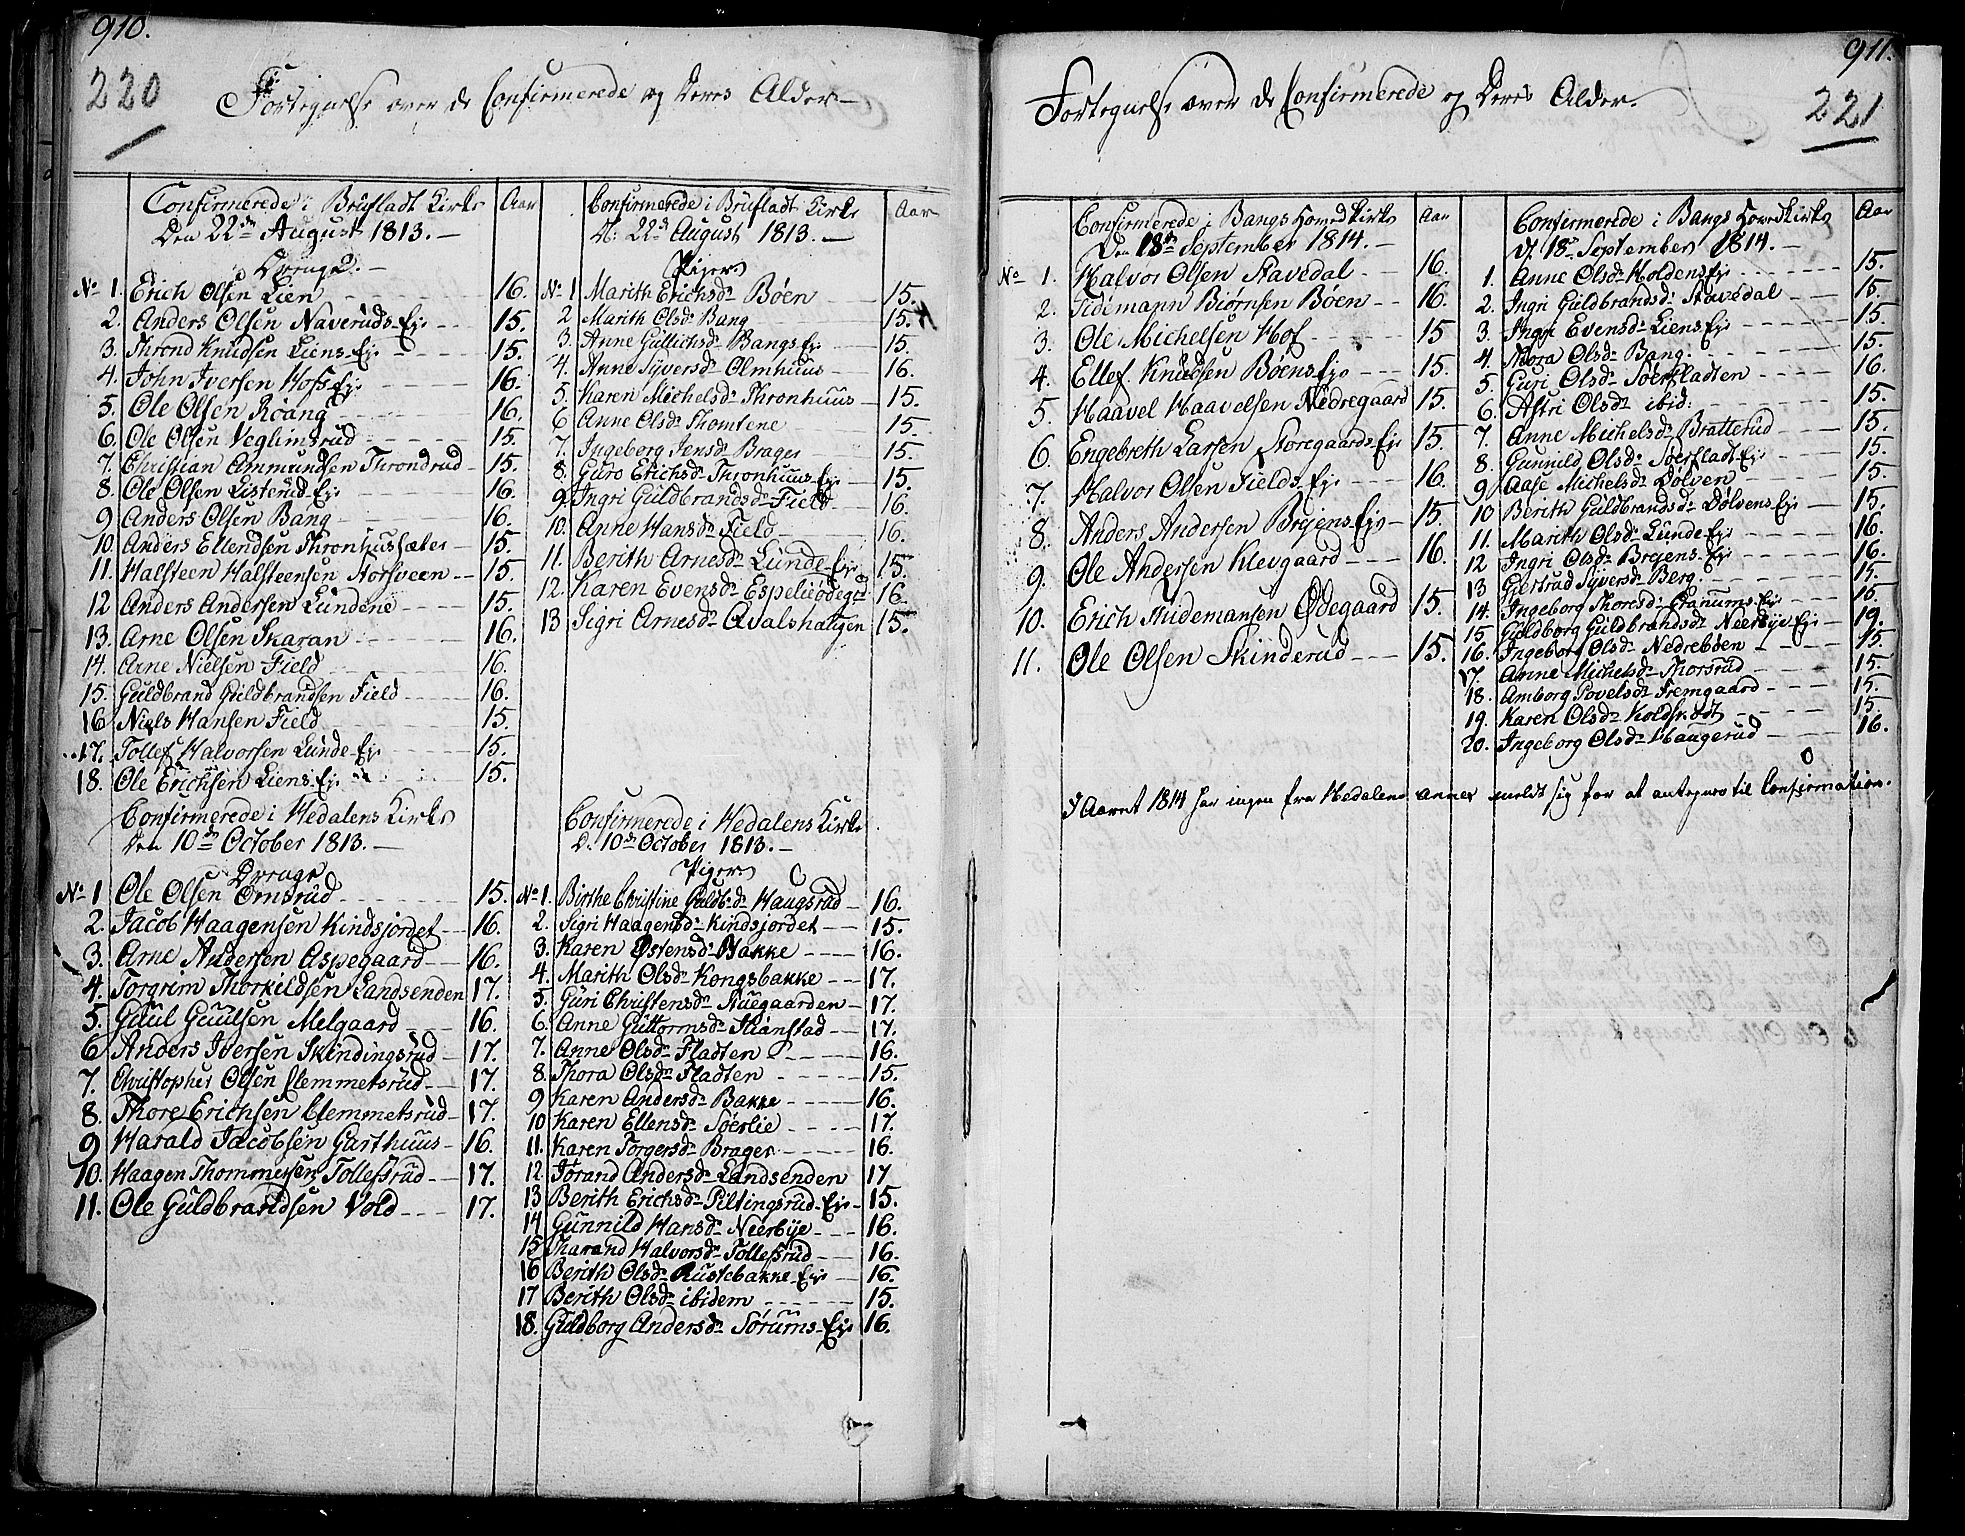 910.
220
Fortegnelse over de Confirmerede og deres Alder
Confirmerede i Brufladt Kirke Aar
Den 22de August 1813.
Drenge.
No 1. Erich Olsen Lien 16.
2. Anders Olsen Naveruds Eje 15.
3. Thrond Knudsen Liens Eje 15.
4. John Iversen Hofs Eje 16.
5. Ole Olsen Roang 16.
6. Ole Olsen Veglimsrud 15.
7. Christian Ammundsen Throndrud 15.
8. Ole Olsen Listerud Eje 16.
9 Anders Olsen Bang 16.
10. Anders Ellendsen Thronhussæter 15.
11. Halsteen Halsteensen Storsveen 15.
12 Anders Andersen Lundene 15.
13. Arne Olsen Skaran 16.
14. Arne Nielsen Field 16.
15. Guldbrand Guldbrandsen Field 16.
16 Niels Hansen Field 15.
17. Tollef Halvorsen Lunde Eje 15.
18. Ole Erichsen Liens Eje 15.
Confirmerede i Hedalens Kirke
Den 10de October 1813.
Drenge
No 1 Ole Olsen Omsrud 15.
2. Jacob Haagensen Kindsjordet 16.
3. Arne Andersen Aspegaard 16.
4. Torgrim Thorkildsen Landsenden 17.
5. Guul Guulsen Melgaard 16.
6 Anders Iversen Skindingsrud 17.
7. Christopher Olsen Clemmetsrud 17.
8. Thore Erichsen Clemmetsrud 17.
9 Harald Jacobsen Garthuus 16.
10. Haagen Thommesen Tollefsrud 17.
11. Ole Guldbrandsen Vold 17.
Confirmerede i Brufladt Kirke Aar
d: 22de August 1813.
Piger
No 1 Marith Erichsdr Bøen 15.
2 Marith Olsdr Bang 15.
3. Anne Gullichsdr Bangs Eje 15.
4. Anne Syversdr Olmhuus 16.
5. Karen Michelsdr Thronhuus 15.
6 Anne Olsdr Thomtene 15.
7. Ingeborg Jensdr Brager 15.
8. Guro Erichsdr Thronhuus Eje 15.
9. Ingri Guldbrandsdr Field 16.
10. Anne Hansdr Field 16.
11. Berith Arnesdr Lunde Eje 15.
12. Karen Evensdr Espeliødegd 16.
13 Sigri Arnesdr Qvalshaugen 15.
Confirmerede i Hedalens Kirke
D. 10de October 1813.
Piger
No 1. Birthe Christine Guldbdr Haugsrud 16.
2. Sigri Haagensdr Kindsjordet 15.
3. Karen Østensdr Bakke 16.
4. Marith Olsdr Kongsbakke 17.
5. Guri Christensdr Stuegaarden 17.
6. Anne Guttormsdr Skiønstad 17.
7. Anne Olsdr Fladten 16.
8. Thora Olsdr Fladten 15.
9 Karen Andersdr Bakke 16.
10 Karen Ellensdr Søerlie 17.
11. Karen Torgersdr Brager 16.
12 Jørand Andersdr Landsenden 17
13 Berith Erichsdr Piltingsrud Eje 15.
14 Gunnild Hansdr Neerbye 16.
15 Tharand Halvorsdr Tollefsrud 16.
16 Berith Olsdr Rustebakke Eje 16.
17 Berith Olsdr ibidem 15.
18. Guldborg Andersdr Sørums Eje 16.
911.
221
Fortegnelse over de Confirmerede og Deres Alder.
Confirmerede i Bangs Hoved Kirke Aar
Den 18de September 1814.
No 1. Halvor Olsen Stavedal 16.
2. Tidemann Biørnsen Bøen 16.
3. Ole Michelsen Hof 15
4. Ellef Knudsen Bøens Eje 15.
5. Haavel Haavelsen Nedregaard 15.
6. Engebreth Larsen Storegaards Eje 15.
7. Halvor Olsen Fields Eje 16.
8. Anders Andersen Breiens Eje 15.
9. Ole Andersen Klevgaard 16.
10. Erich Thidemansen Ødegaard 15.
11. Ole Olsen Skinderud 15.
Confirmerede i Bangs Hoved Kirke Aar
d. 18de September 1814.
1. Anne Olsdr Holdens Eje 15.
2. Ingri Guldbrandsdr Stavedal 15.
3. Ingri Evensdr Liens Eje 15
4 Thora Olsdr Bang 15.
5 Guri Olsdr Søerfladten 16.
6. Astri Olsdr ibid: 15.
7. Anne Michelsdr Bratterud 15.
8. Gunnild Olsdr Søerfladt Eje 15.
9 Aase Michelsdr Dølven 15.
10 Berith Guldbrandsdr Dølvens Eje 15.
11. Marith Olsdr Lunde Eje 16.
12 Ingri Olsdr Breiens Eje 16.
13 Giertrud Syversdr Berg 15.
14. Ingeborg Thoresdr Granums Eje 15.
15 Guldborg Guldbrandsdr Neerbye Eje 19.
16. Ingeborg Olsdr Nedrebøen 15.
17. Anne Michelsdr Thorsrud 15.
18. Amborg Povelsdr Fremgaard 15.
19. Karen Olsdr 15.
20. Ingeborg Olsdr Haugerud 16.
I Aaret 1814 har ingen fra Hedalens Annex meldt sig for at antages til Confirmation.